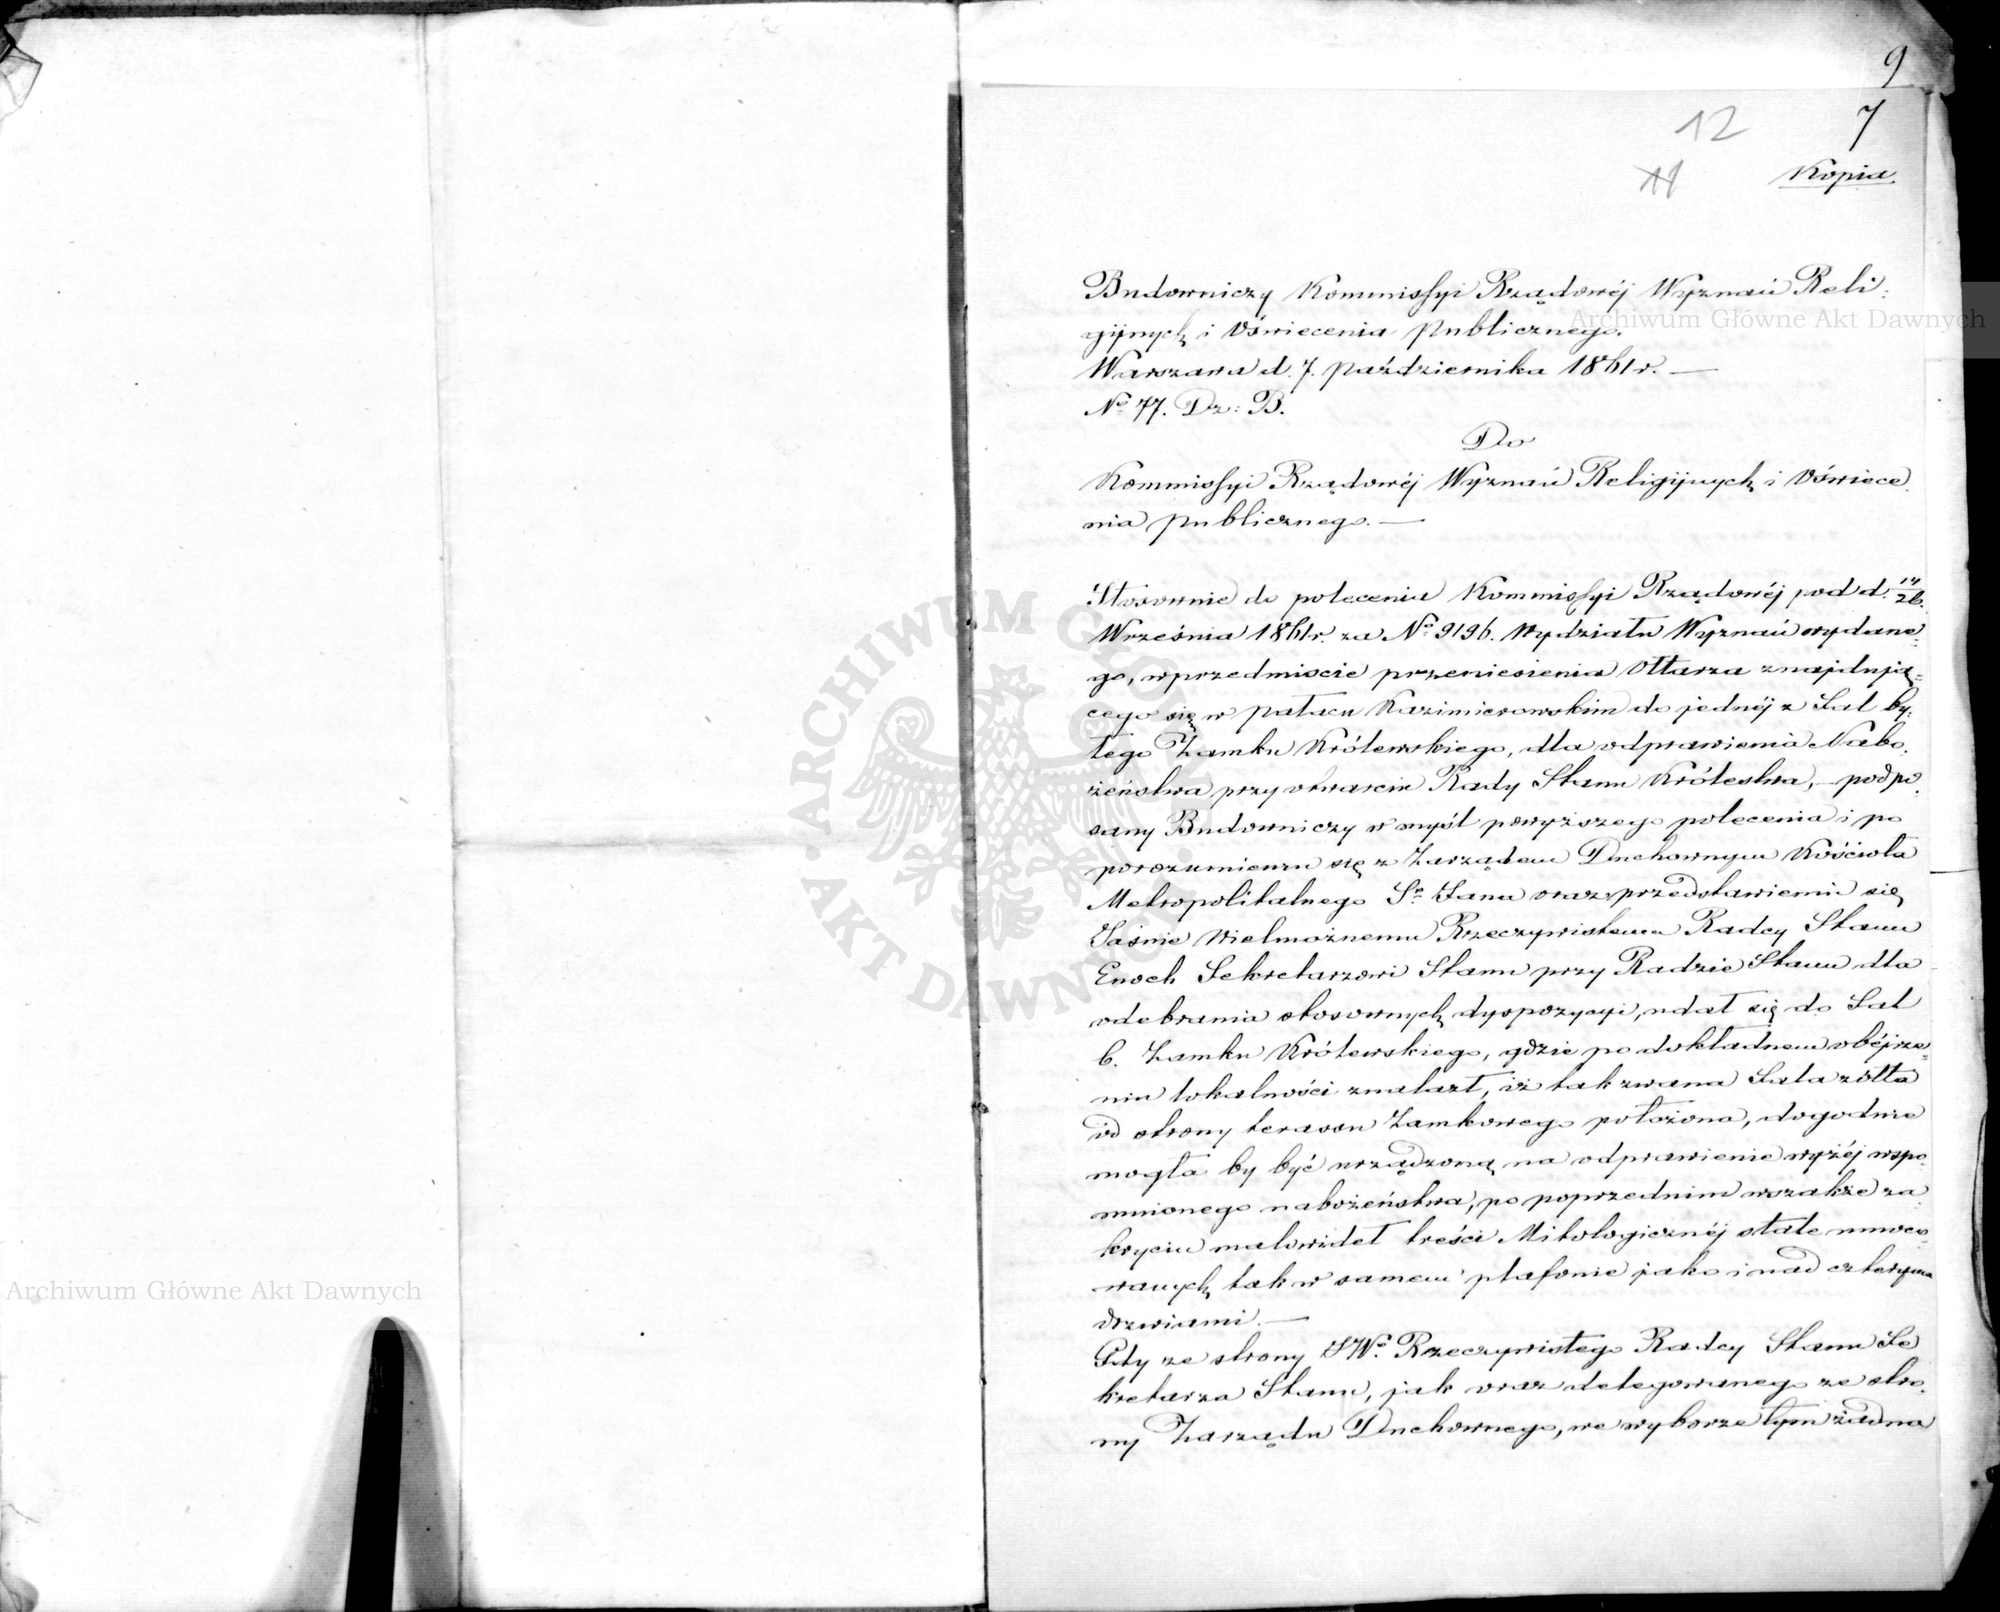 9
7
12
11
Kopia
Budowniczy Kommissyi Rządowéj Wyznań Reli:
gijnych i Oświecenia Publicznego.
Warszawa d. 7. Października 1861 r. —
No 77. Dz: B.
Do
Kommissyi Rządowéj Wyznań Religijnych i Oświece
nia publicznego. —
Stosownie do polecenia Kommissyi Rządowéj pod d. 14/26.
Września 1861 r. za No 9196. Wydziału Wyznań wydane=
go, w przedmiocie przeniesienia Ołtarza znajdują=
cego się w pałacu Kazimierowskim do jednéj z Sal by:
łego Zamku Królewskiego, dla odprawienia Nabo.
żeństwa przy otwarciu Rady Stanu Królestwa, – podpi.
sany Budowniczy w myśl powyższego polecenia i po
porozumieniu się z Zarządem Duchownym Kościoła
Metropolitalnego Sgo Jana oraz przedstawieniu się
Jaśnie Wielmożnemu Rzeczywistemu Radcy Stanu
Enoch Sekretarzowi Stanu przy Radzie Stanu dla
odebrania stosownych dyspozycyi, udał się do Sal
b. Zamku Królewskiego, gdzie po dokładnem obéjrze=
niu lokalności znalazł, iż tak zwana Sala żółta
od strony terasou Zamkowego położona, dogodnie
mogła by być urządzoną na odprawienie wyżéj wspo.
mnionego nabożeństwa, po poprzednim wszakże za
kryciu malowideł treści Mitologicznéj stale umoco=
wanych tak w samem plafonie jako i nad czterema
drzwiami. —
Gdy ze strony JWo. Rzeczywistego Radcy Stanu Se
kretarza Stanu, jak oraz delegowanego ze stro.
ny Zarządu Duchownego, we wyborze tym żadna
ARCHIWUM GŁÓWNE AKT DAWNYCH
Archiwum Główne Akt Dawnych
Archiwum Główne Akt Dawnych